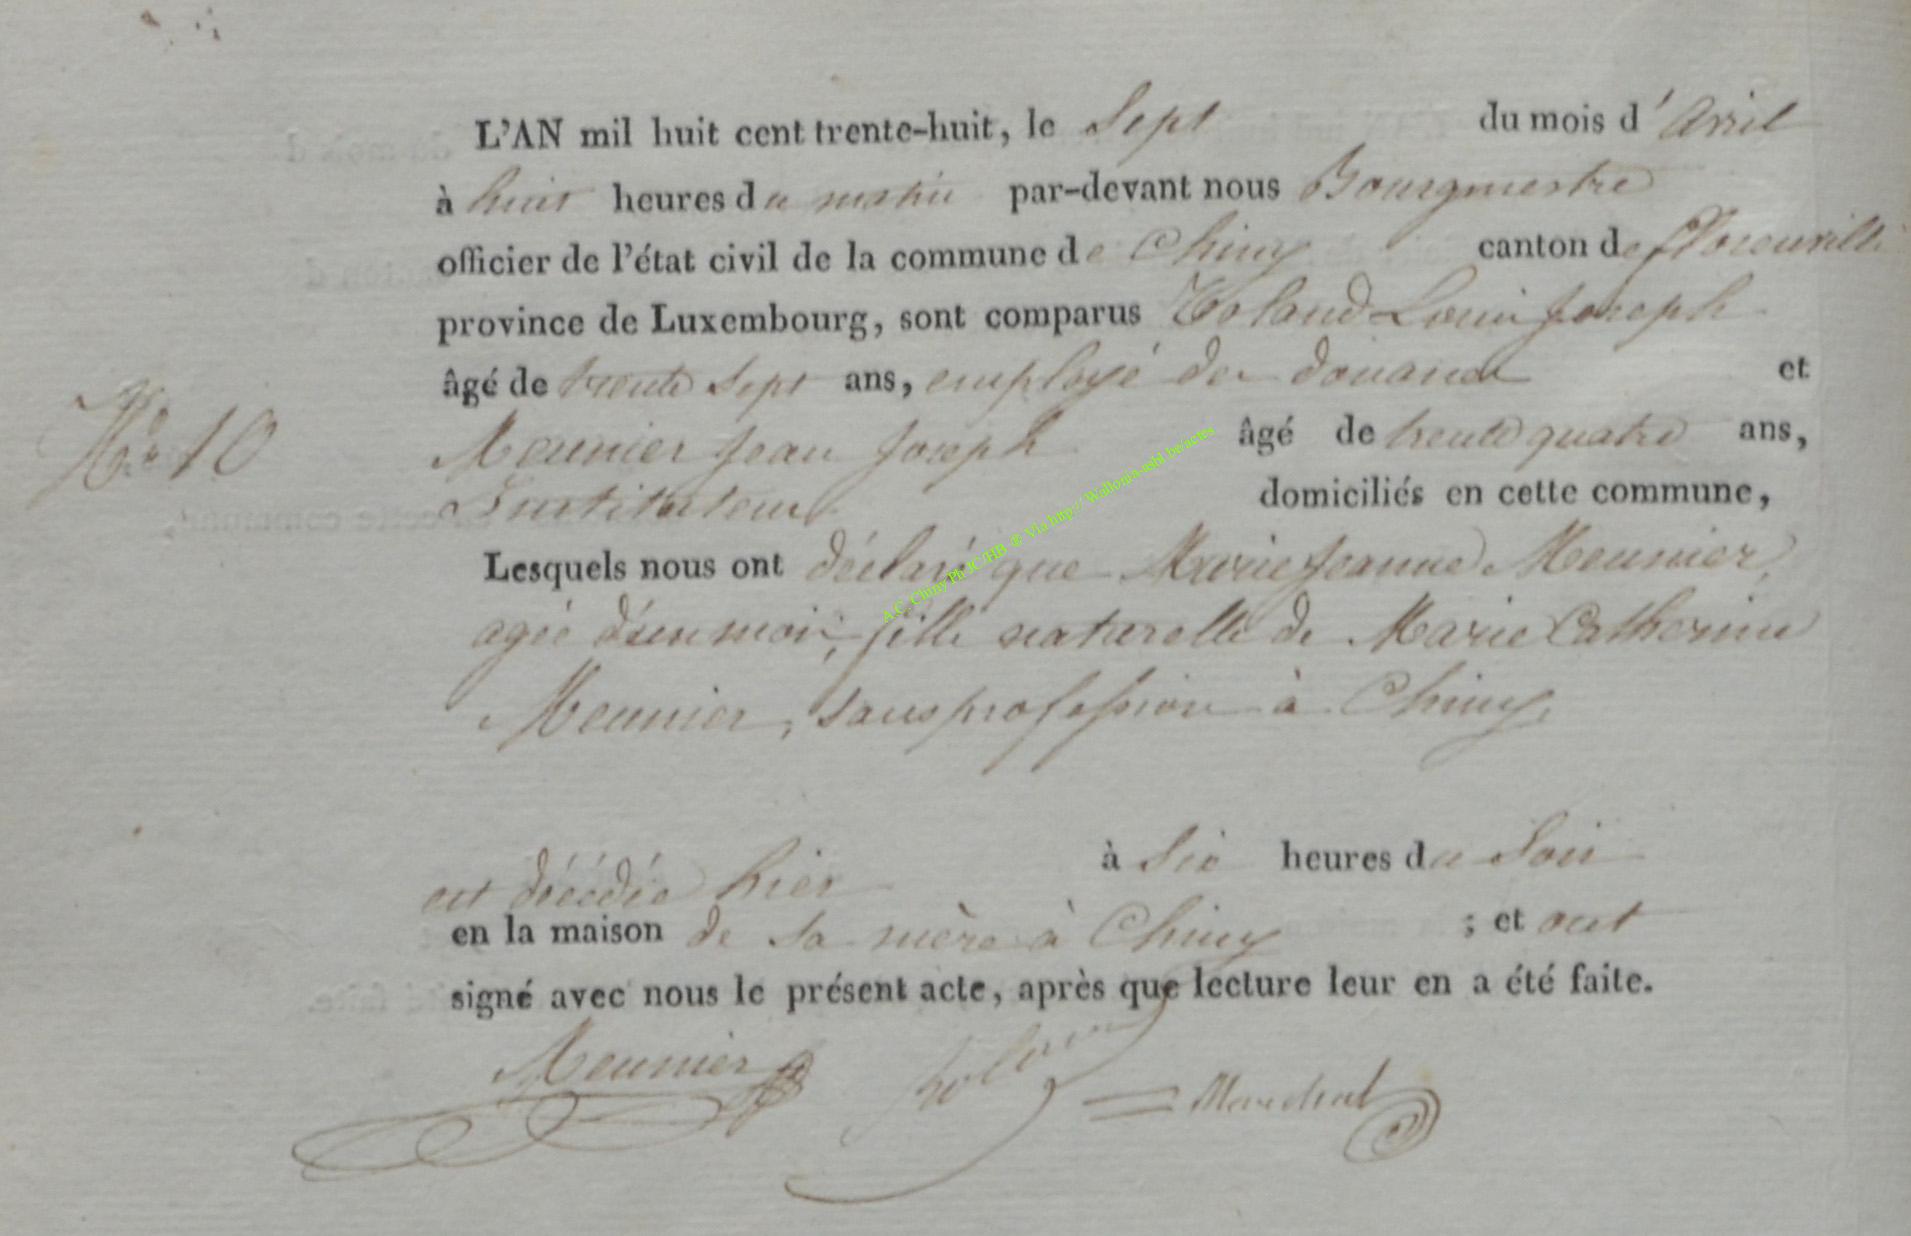 L'AN mil huit cent trente-huit, le Sept du mois d'Avril
à huit heures du matin par-devant nous Bourgmestre
officier de l'état civil de la commune de Chiny canton de florenville
province de Luxembourg, sont comparus Louis Joseph
âgé de trente Sept ans, employé des douanes et
N° 10
Meunier Jean Joseph âgé de trente quatre ans,
Instituteur domiciliés en cette commune,
Lesquels nous ont déclaré que Marie Jeanne Meunier,
agée d'un mois, fille naturelle de Marie Catherine
Meunier, sans profession à Chiny,
est décédée hier à Six heures du Soir
en la maison de sa mère à Chiny ; et ont
signé avec nous le présent acte, après que lecture leur en a été faite.
Meunier
A.C. Chiny Ph JC/HB ® Via http://Wallonia-asbl.be/actes